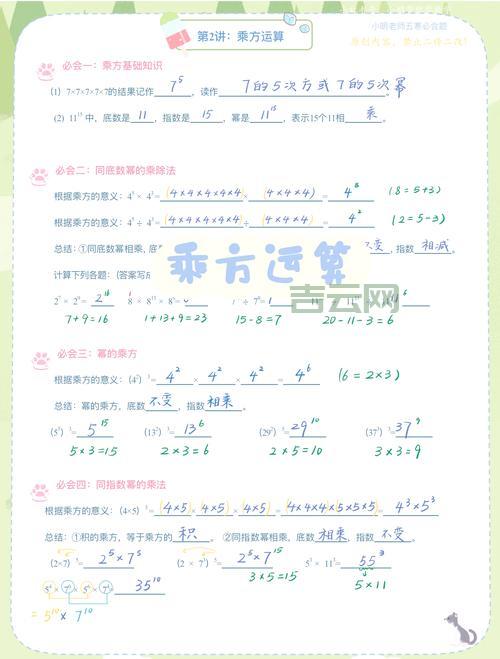 第2讲：乘方运算
小明老师五寒必会题
原创内容，禁止二传二改！
必会一：乘方基础知识
(1) 7×7×7×7×7的结果记作 7⁵ ，读作 7的5次方或7的5次幂 。
(2) 11¹⁵ 中，底数是 11 ，指数是 15 ，幂是 11¹⁵ ，表示15个11相 乘 。
必会二：同底数幂的乘除法
根据乘方的意义：4⁵ × 4³= (4×4×4×4×4) × (4×4×4) = 4⁸ (8=5+3)
根据乘方的意义：4⁵ ÷ 4³= (4×4×4×4×4) ÷ (4×4×4) = 4² (2=5-3)
总结：①同底数幂相乘，底 不变 ，指数 相减 。
乘方运算
计算下列各题：(答案写成
吉云网
7+9=16 1+13+9=23 15-8=7 20-11-3=6
必会三：幂的乘方
根据乘方的意义：(4²) ³= 4² × 4² × 4² = 4⁶ (6=2×3)
总结：幂的乘方，底数 不变 ，指数 相乘 。
(5³) ⁵= 5¹⁵ (13²) ³= 13⁶ (29²) ⁵= 29¹⁰ (37³) ³= 37⁹
5×3=15 2×3=6 2×5=10 3×3=9
必会四：同指数幂的乘法
根据乘方的意义：(4×5) ³= (4×5) × (4×5) × (4×5) = (4×4×4)×(5×5×5) = 4³×5³
总结：①积的乘方，等于乘方的 积 。 ②同指数幂相乘，底数 相乘 ，指数 不变 。
(2×7) ⁵= 2⁵×7⁵ (2 × 7³) ⁵= 2⁵×7¹⁵ 5³ × 11³= 55³
3×5=15 5×11
35¹⁰
= 5¹⁰ × 7¹⁰